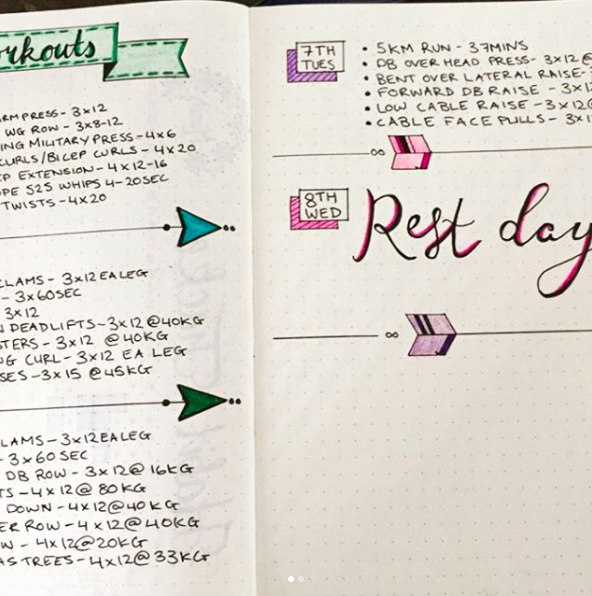 orkouts
RMPRESS - 3x12
WG ROW - 3x8-12
ING MILITARY PRESS - 4x6
CURLS/BICEP CURLS - 4x20
EP EXTENSION - 4x12-16
OPE S2S WHIPS 4-20SEC
TWISTS - 4x20
CLAMS - 3x12 EA LEG
- 3x60SEC
3x12
N DEADLIFTS - 3x12 @40KG
STERS - 3x12 @40KG
NG CURL - 3x12 EA LEG
SES - 3x15 @45KG
LAMS - 3x12 EA LEG
- 3x60SEC
DB ROW - 3x12@16KG
TS - 4x12@80KG
DOWN - 4x12@40KG
ER ROW - 4x12@40KG
W - 4x12@20KG
AS TREES - 4x12@33KG
7TH
TUES
• 5KM RUN - 37MINS
• DB OVER HEAD PRESS - 3x12@
• BENT OVER LATERAL RAISE -
• FORWARD DB RAISE - 3x12
• LOW CABLE RAISE - 3x12@
• CABLE FACE PULLS - 3x1
8TH
WED
Rest day